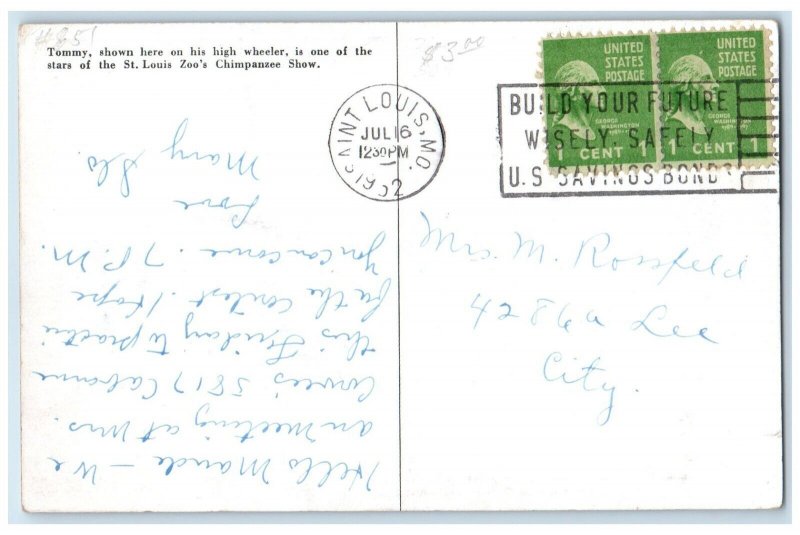 #851
Tommy, shown here on his high wheeler, is one of the
stars of the St. Louis Zoo's Chimpanzee Show.
$3.00
SAINT LOUIS, MO.
JUL 16
12 30 PM
1952
UNITED
STATES
POSTAGE
GEORGE
WASHINGTON
1 CENT 1
UNITED
STATES
POSTAGE
GEORGE
WASHINGTON
1 CENT 1
BUILD YOUR FUTURE
WISELY, SAFELY
U.S. SAVINGS BONDS
Hello Maude - We
are meeting at Mrs.
5817 Cabanne
this Friday to practice
for the contest. Hope
you can come. 7 P.M.
Love
Mary
Mrs. M. Rossfeld
4286a Lee
City.